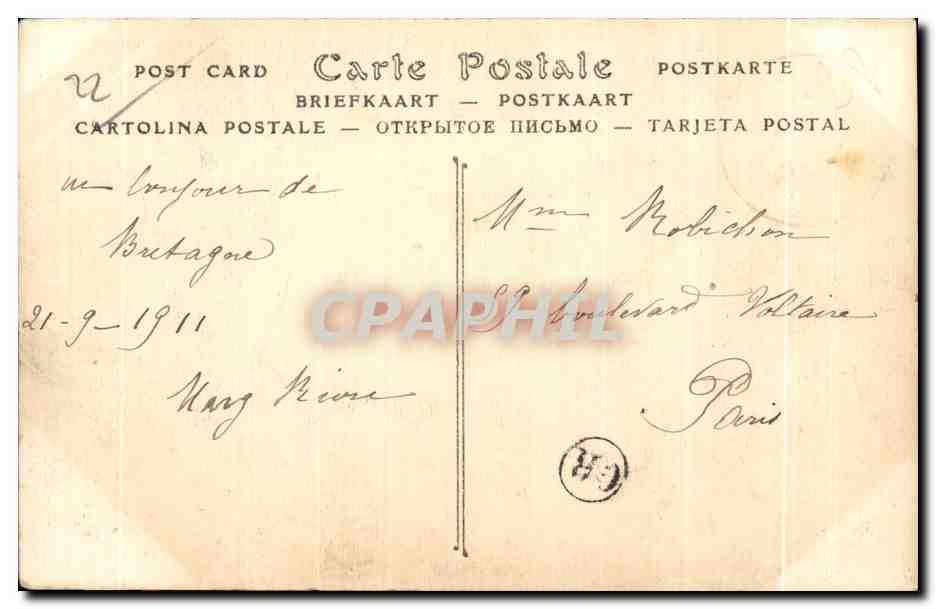 22
POST CARD Carte Postale POSTKARTE
BRIEFKAART — POSTKAART
CARTOLINA POSTALE — ОТКРЫТОЕ ПИСЬМО — TARJETA POSTAL
un bonjour de
Bretagne
21-9-1911
Marg
Mme Robichon
59 boulevard Voltaire
Paris
CPAPHIL